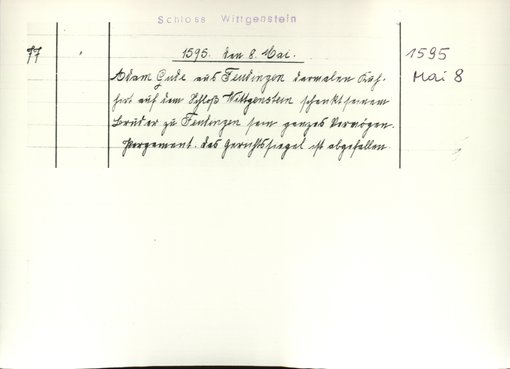 Schloss Wittgenstein
77
1595. den 8. Mai.
1595
Mai 8
Adam Gude aus Feudingen dermalen Kuh-
hirt auf dem Schloß Wittgenstein schenkt seinem
Bruder zu Feudingen sein ganzes Vermögen.
Pergament. Das Gerichtssiegel ist abgefallen.